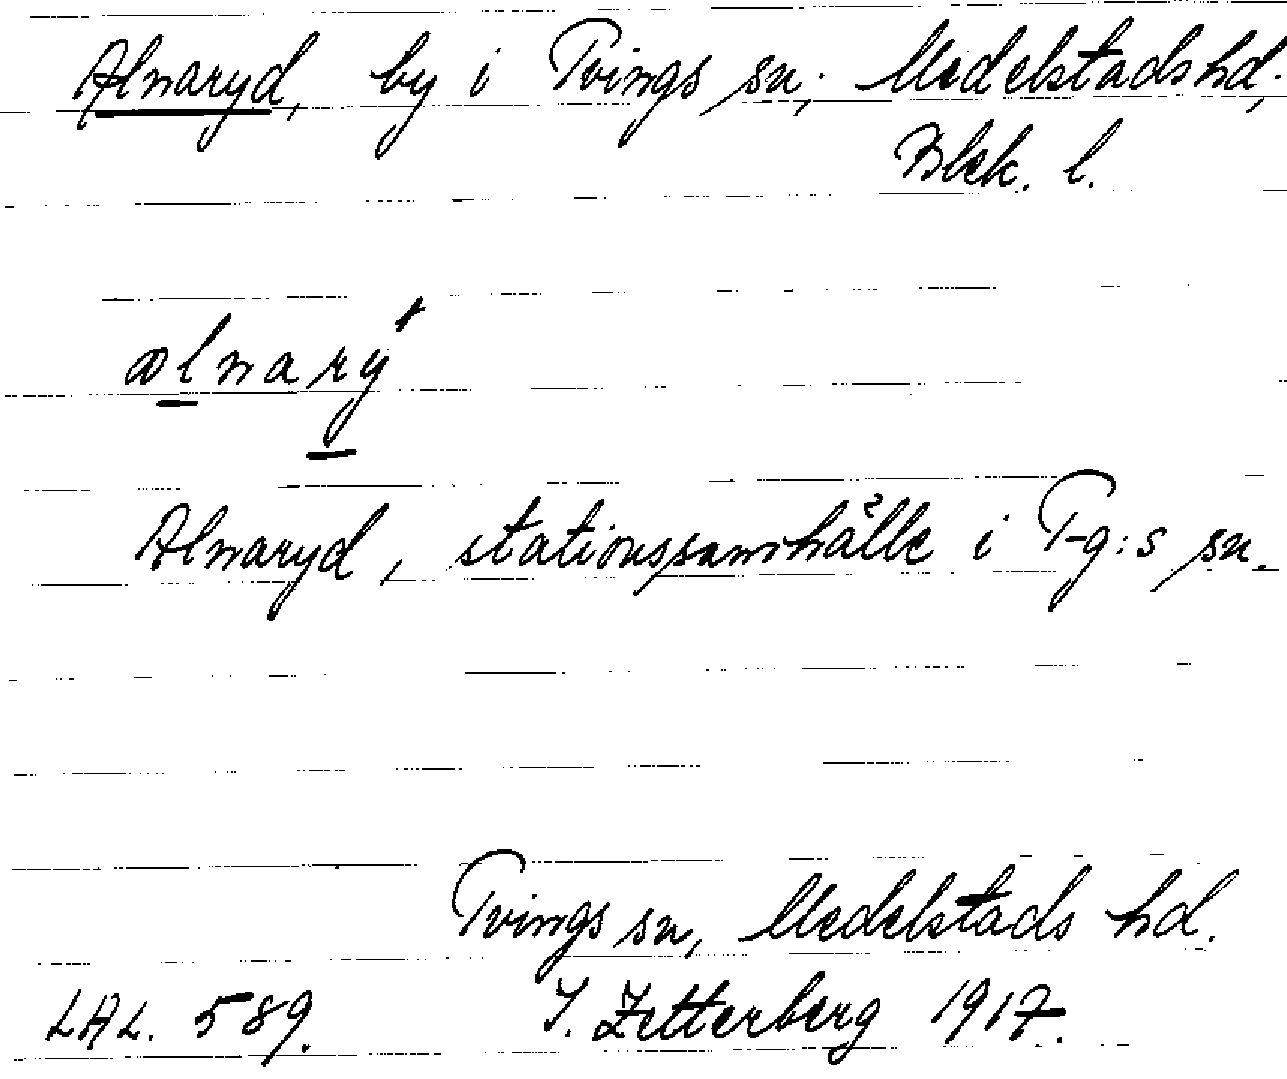 Alnaryd, by i Tvings sn, Medelstads hd,
Blek. l.
alnarý
Alnaryd, stationssamhälle i T-g:s sn.
Tvings sn, Medelstads hd.
LAL. 589. I. Zetterberg 1917.